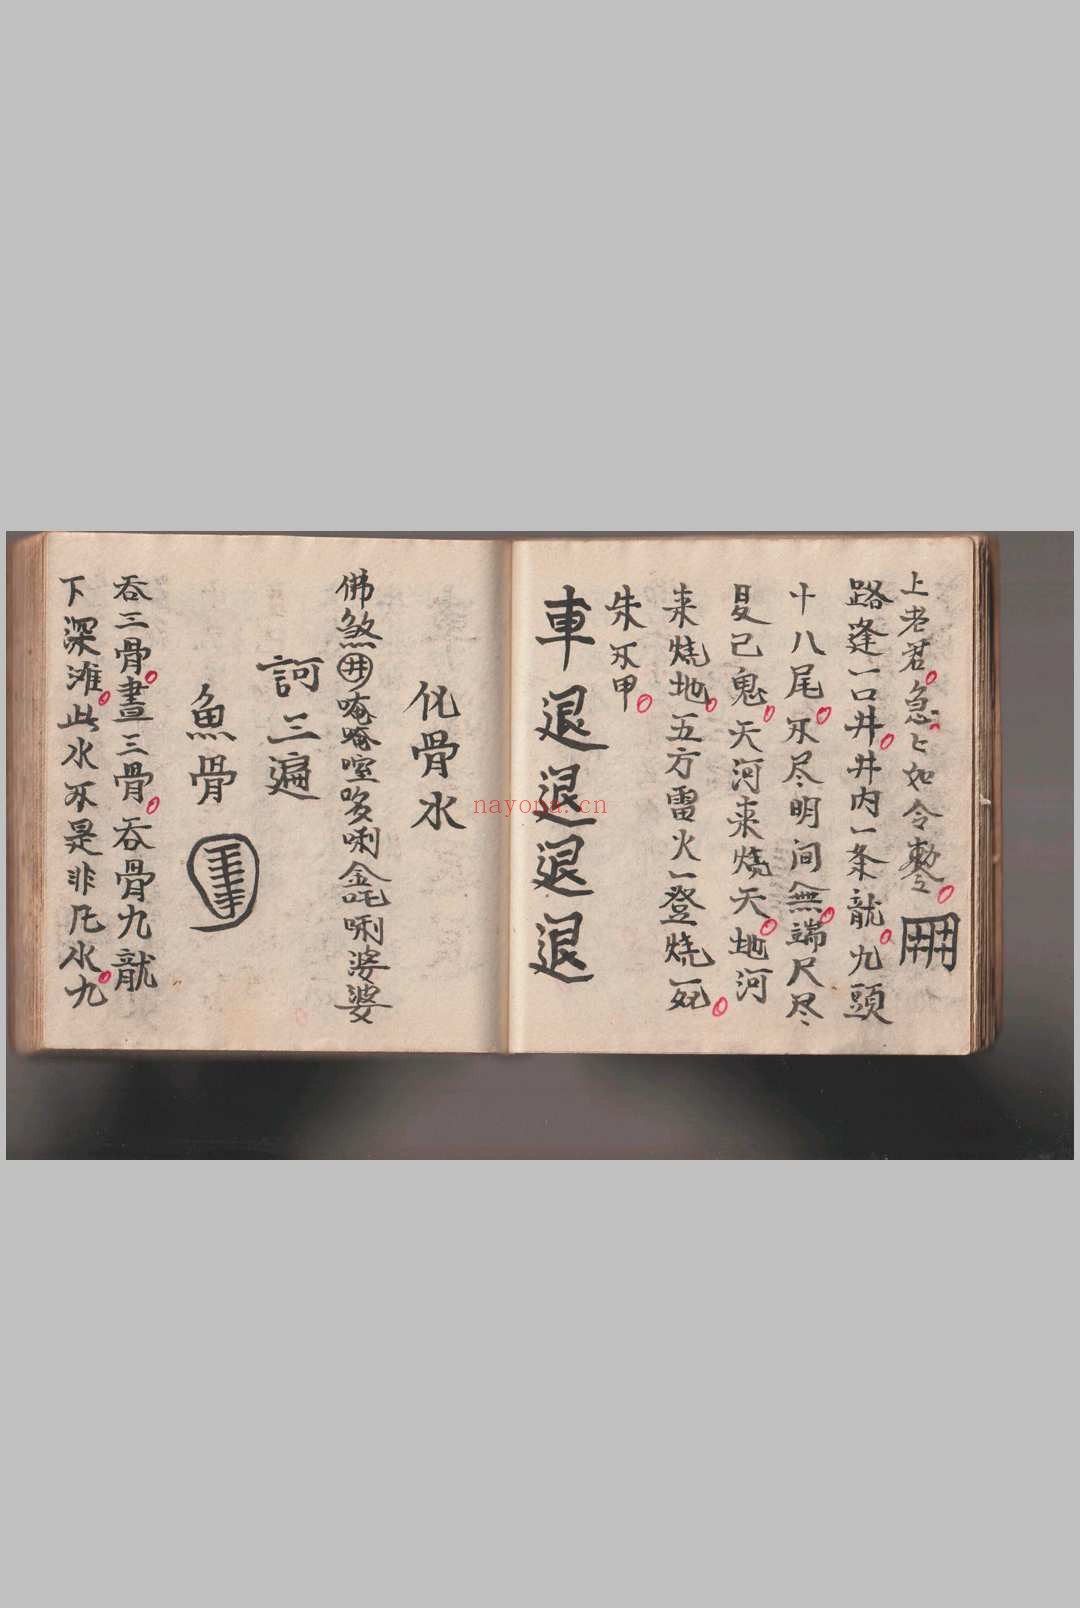 上老君急〻如令敕令
路逢一口井井内一条龍九頭
十八尾不尽明间無端尺尽
夏己鬼天河来燒天地河
来燒地五方雷火一登燒死
朱不甲
車退退退退
化骨水
佛煞井唵唵唵哆唎唎婆婆
訶三遍
魚骨
吞三骨晝三骨吞骨九龍
下深滩此水不是非凡水九
nayona.cn